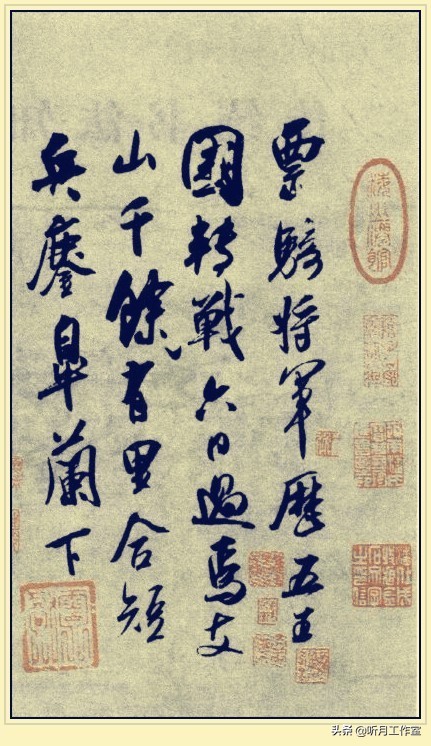 票騎将軍歷五王
國轉戰六日過焉支
山千餘有里合短
兵鏖皐蘭下
头条 @听月工作室